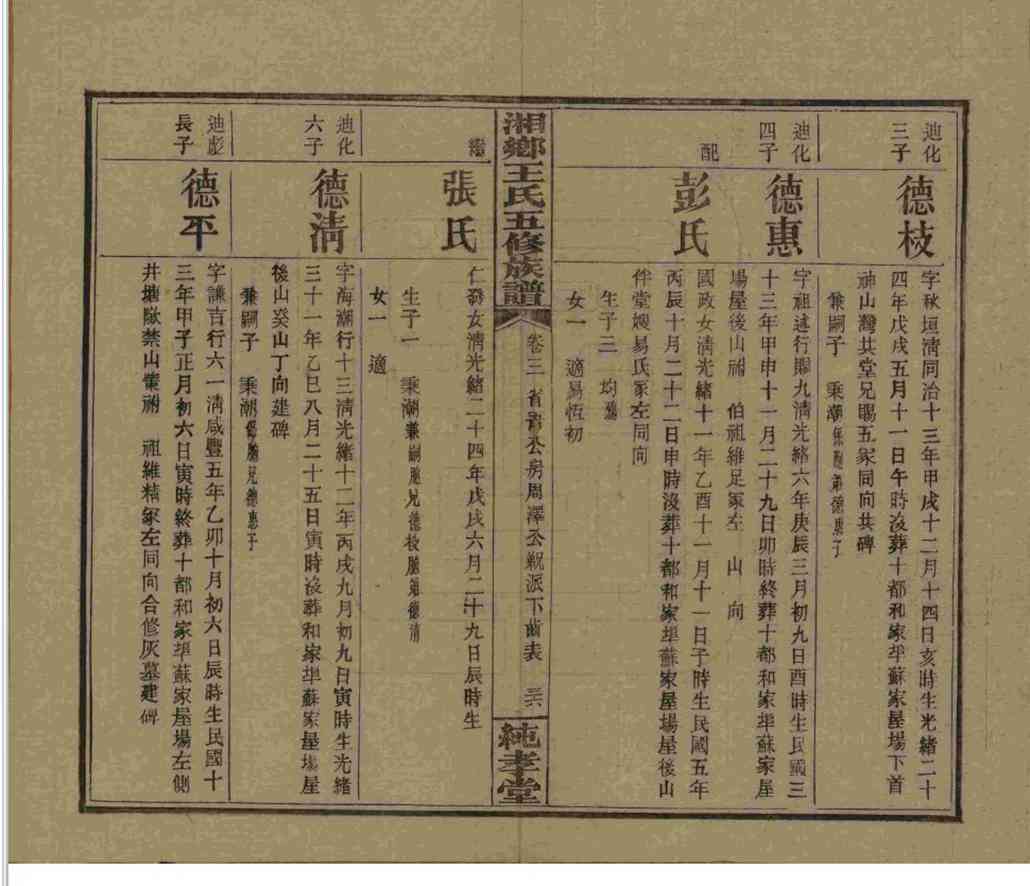 迪化
三子
德枝
字秋垣清同治十三年甲戌十二月十四日亥時生光緒二十
四年戊戌五月十一日午時沒葬十都和家埠蘇家屋場下首
神山灣共堂兄賜五冢同向共碑
兼嗣子 秉潮係胞弟德惠子
迪化
四子
德惠
字祖述行賜九清光緒六年庚辰三月初九日酉時生民國三
十三年甲申十一月二十九日卯時終葬十都和家埠蘇家屋
場屋後山祔 伯祖維足冢左 山 向
配
彭氏
國政女清光緒十一年乙酉十一月十一日子時生民國五年
丙辰十月二十二日申時沒葬十都和家埠蘇家屋場屋後山
伴堂嫂易氏冢左同向
生子三 均殤
女一 適易恆初
湘鄉王氏五修族譜
卷三 省 公房周澤公 派下齒表 三六
純孝堂
繼
張氏
仁發女清光緒二十四年戊戌六月二十九日辰時生
生子一 秉潮兼嗣胞兄德枝胞弟德清
女一 適
迪化
六子
德清
字海潮行十三清光緒十二年丙戌九月初九日寅時生光緒
三十一年乙巳八月二十五日寅時沒葬和家埠蘇家屋場屋
後山癸山丁向建碑
兼嗣子 秉潮係胞兄德惠子
迪彪
長子
德平
字謙吉行六一清咸豐五年乙卯十月初六日辰時生民國十
三年甲子正月初六日寅時終葬十都和家埠蘇家屋場左側
井塘 禁山 祔 祖維精冢左同向合修灰墓建碑